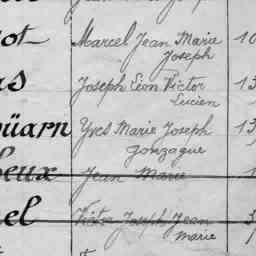 ot Marcel Jean Marie 10
Joseph
as Joseph Léon Victor 13
Lucien
oüarn Yves Marie Joseph 13
gonzague
Jean Marie
el Victor Joseph Jean
marie